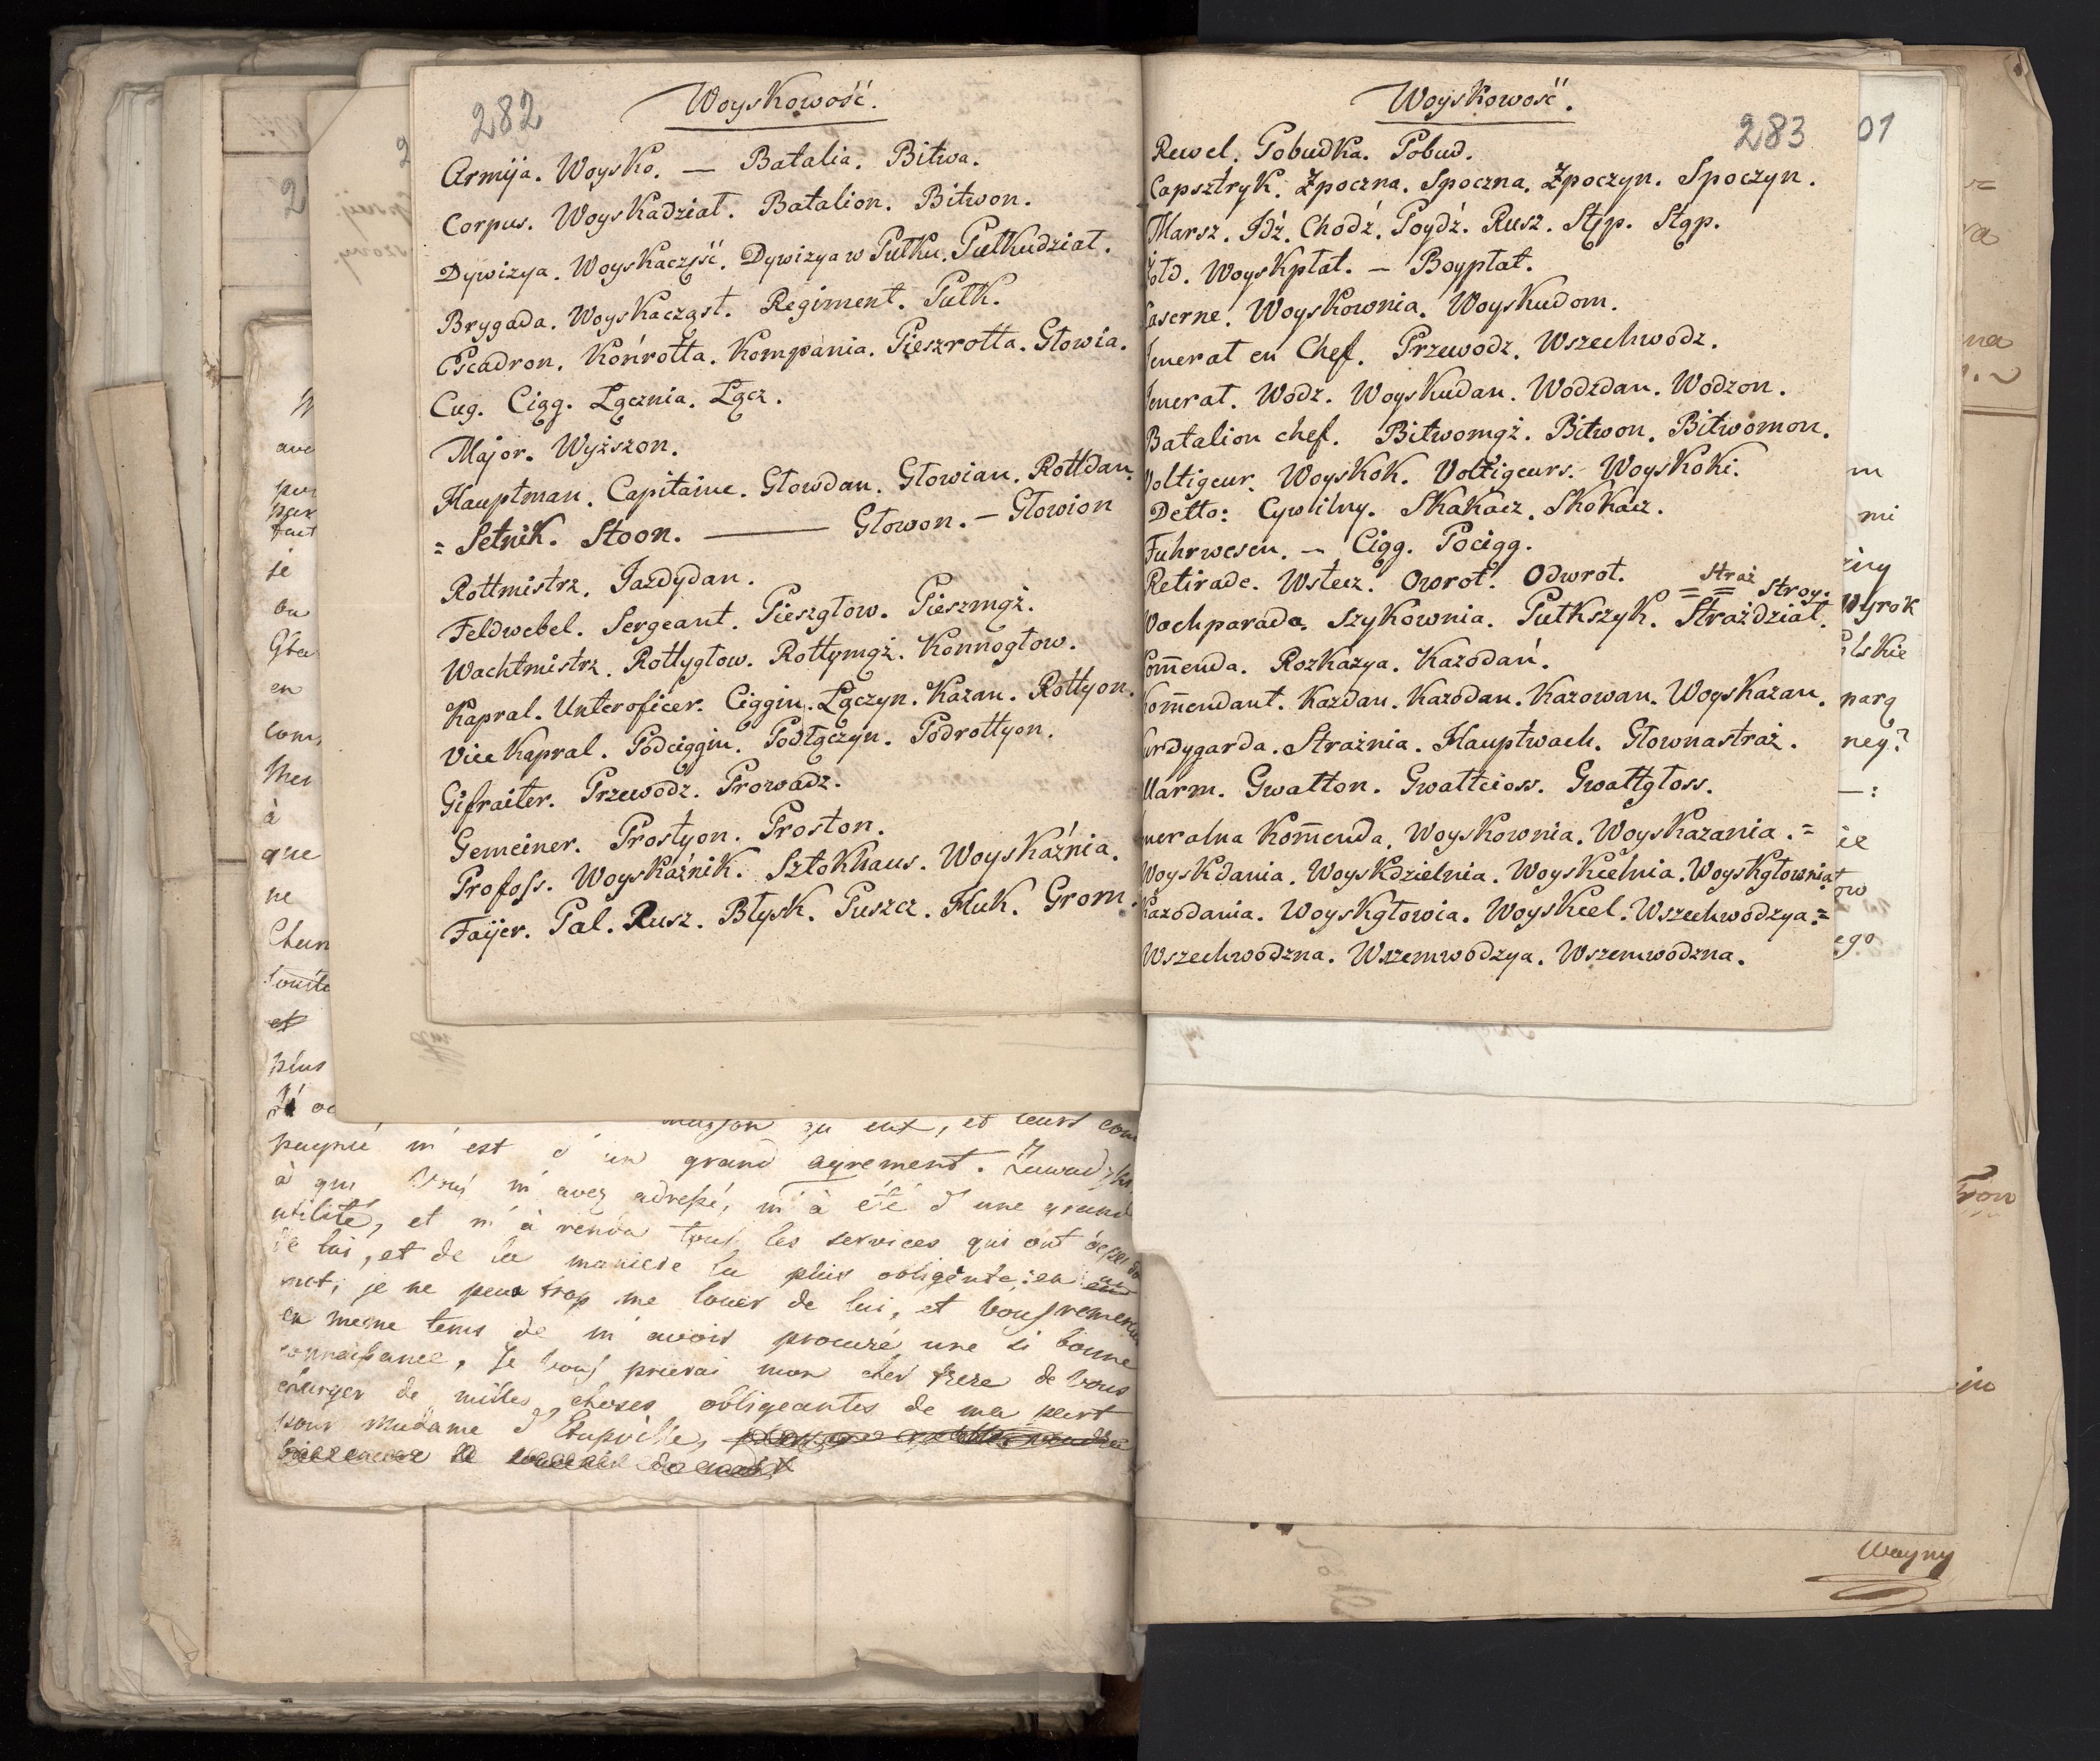 282
Woyskowość.
Armija. Woysko. — Batalia. Bitwa.
Corpus. Woyskadział. Batalion. Bitwon.
Dywizya. Woyskaczęść. Dywizya w Pułku. Pułkudział.
Brygada. Woyskacząst. Regiment. Pułk.
Escadron. Końrotta. Kompania. Pieszrotta. Głowia.
Cug. Ciąg. Łącznia. Łącz.
Major. Wyższon.
Hauptman. Capitaine. Głowdan. Głowian. Rottdan.
= Setnik. Stoon. — Głowon. — Głowion
Rottmistrz. Jazdydan.
Feldwebel. Sergeant. Pieszgłow. Pieszmąż.
Wachtmistrz. Rottygłow. Rottymąż. Konnogłow.
Kapral. Unteroficer. Ciągin. Łączyn. Kazan. Rottyon.
Vice Kapral. Podciągin. Podłączyn. Podrottyon.
Gifraiter. Przewodz. Prowadz.
Gemeiner. Prostyon. Proston.
Profoss. Woyskaźnik. Sztokhaus. Woyskaźnia.
Faijer. Pal. Rusz. Błysk. Puszcz. Huk. Grom.
283
Woyskowość.
Rewel. Pobudka. Pobud.
Capsztryk. Zpoczna. Spoczna. Zpoczyn. Spoczyn.
Marsz. Idź. Chodź. Poydź. Rusz. Stęp. Stąp.
Żołd. Woyskpłat. — Boypłat.
Caserne. Woyskownia. Woyskudom.
Jenerał en Chef. Przewodz. Wszechwodz.
Jenerał. Wodz. Woyskudan. Wodzdan. Wodzon.
Batalion chef. Bitwomąż. Bitwon. Bitwomon.
Voltigeur. Woyskok. Voltigeurs. Woyskoki.
Detto: Cywilny. Skakacz. Skokacz.
Fuhrwesen. — Ciąg. Pociąg.
Retirade. Wstecz. Owrot. Odwrot.
Straż = = Stroy.
Wochparada. Szykownia. Pułkszyk. Strażdział.
Kom̄enda. Rozkazya. Kazodań.
Kom̄endant. Kazdan. Kazodan. Kazowan. Woyskazan.
urdygarda. Strażnia. Hauptwach. Głownastraż.
Alarm. Gwałton. Gwałtcioss. Gwałtgłoss.
neralna Kom̄enda. Woyskownia. Woyskazania. =
Woyskdania. Woyskdzielnia. Woyskcelnia. Woyskgłownia.
Kazodania. Woyskgłowia. Woyskcel. Wszechwodzya. =
Wszechwodzna. Wszemwodzya. Wszemwodzna.
01
mi
wyrok
ney?
ego
à
que
ne
et
plus
qu eux, et leurs
m'est d'un grand agrement.
à qui Vous m'avez adressé, m'à été d'une grand
utilité, et m'à rendu tous les services qui ont
de lui, et de la maniere la plus obligente: en
mot, je ne peux trop me louer de lui, et Vous
en meme tems de m'avoir procuré une si bonne
connaissance, Je Vous prierai mon cher frere de Vous
charger de milles choses obligeantes de ma part
pour Madame
Wayny